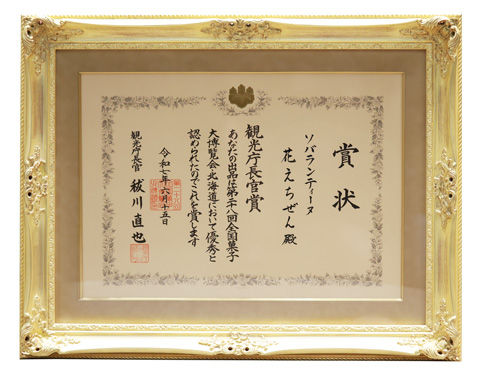 賞状
ソバランティーヌ
花えちぜん殿
観光庁長官賞
あなたの出品は第二十八回全国菓子
大博覧会・北海道において優秀と
認められたのでこれを賞します
令和七年六月十五日
観光庁長官 秡川直也